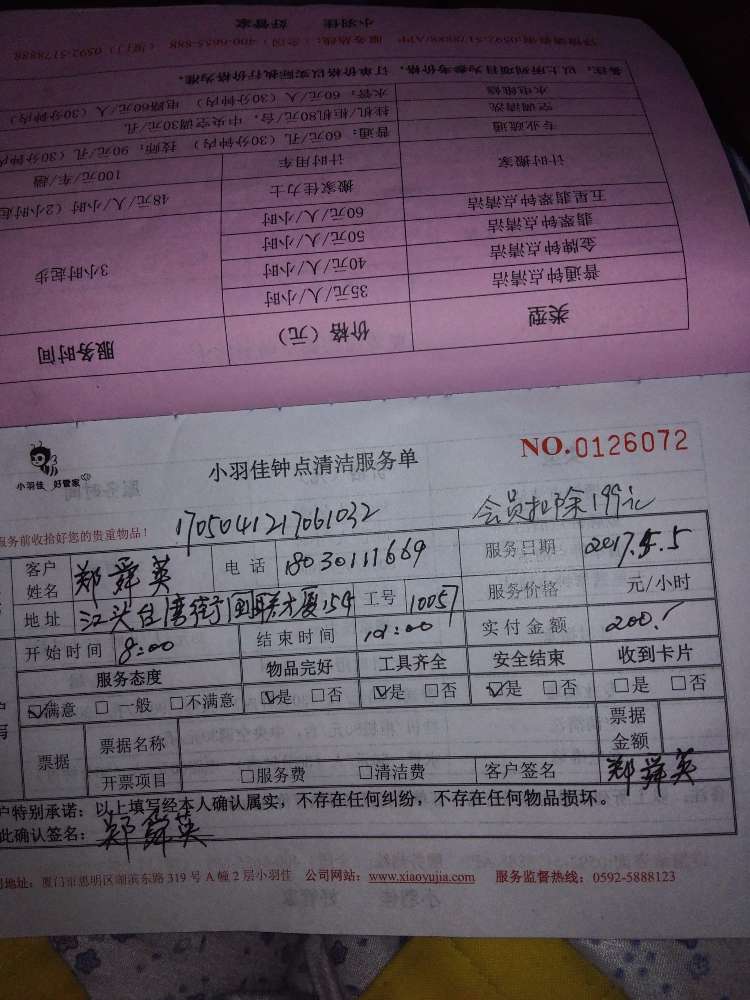 小羽佳 好管家
服务热线：(全国) 400-6655-888 (厦门) 0592-5178888
备注：以上所列项目为参考价格，订单价格以实际执行价格为准。
水电维修 水管：60元/人 (30分钟内) 电路60元/人 (30分钟内)
空调清洗 挂机/柜机80元/台，中央空调30元/孔
专业疏通 普通：60元/孔 (30分钟内) 技师：90元/孔 (30分钟内
计时搬家 计时用车 100元/车/趟
搬家佳力士 48元/人/小时 (2小时起
五星翡翠钟点清洁 60元/人/小时
翡翠钟点清洁 50元/人/小时 3小时起步
金牌钟点清洁 40元/人/小时
普通钟点清洁 35元/人/小时
类型 价格（元） 服务时间
小羽佳 好管家
小羽佳钟点清洁服务单
NO.0126072
服务前收拾好您的贵重物品！
1705041217061032
会员扣除199元
客户姓名 郑舜英 电话 18030111669 服务日期 2017.5.5
地址 江头台湾街闽联大厦154 工号 10057 服务价格 元/小时
开始时间 8:00 结束时间 :00 实付金额 200.
服务态度 物品完好 工具齐全 安全结束 收到卡片
☑满意 □一般 □不满意 ☑是 □否 ☑是 □否 ☑是 □否 □是 □否
票据 票据名称 票据金额
开票项目 □服务费 □清洁费 客户签名 郑舜英
户特别承诺：以上填写经本人确认属实，不存在任何纠纷，不存在任何物品损坏。
此确认签名：郑舜英
司地址：厦门市思明区湖滨东路 319 号 A 幢 2 层小羽佳 公司网站：www.xiaoyujia.com 服务监督热线：0592-5888123